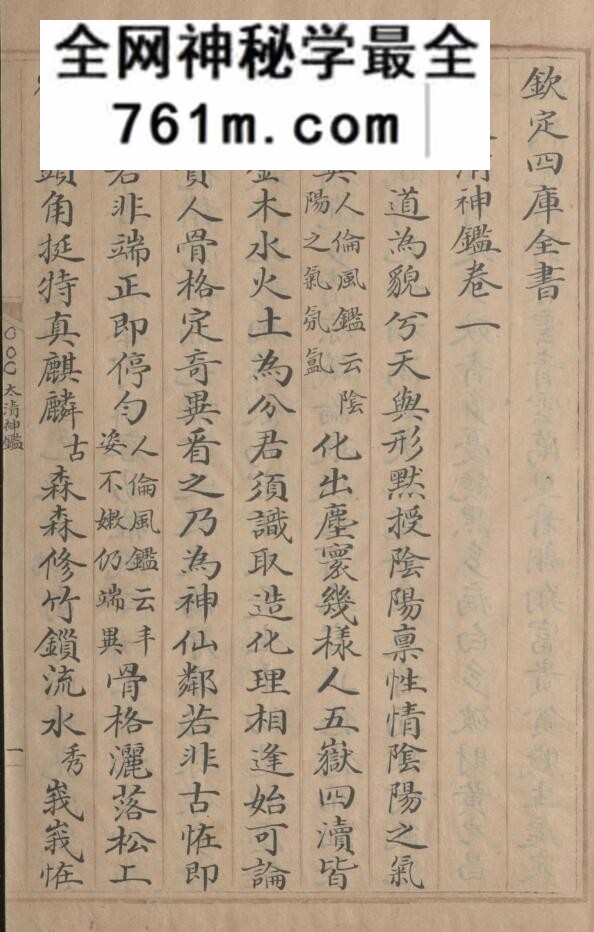 全网神秘学最全
761m.com
欽定四庫全書
清神鑑卷一
道為貌兮天與形默授陰陽稟性情陰陽之氣
人倫風鑑云陰
陽之氣氛氳
化出塵寰幾樣人五嶽四瀆皆
金木水火土為分君須識取造化理相逢始可論
貴人骨格定奇異看之乃為神仙鄰若非古怪即
若非端正即停勻
人倫風鑑云丰
姿不嫩仍端異
骨格灑落松工
頭角挺特真麒麟古森森修竹鎖流水秀峩峩怪
太清神鑑
一